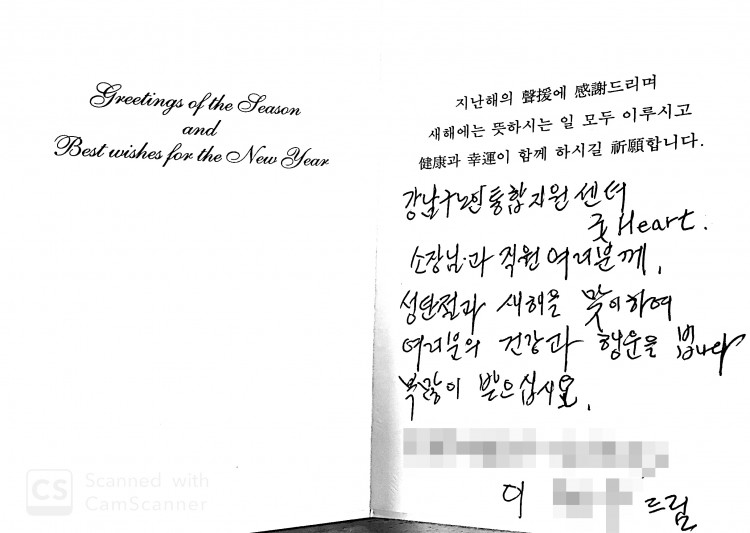 Greetings of the Season
and
Best wishes for the New Year
지난해의 聲援에 感謝드리며
새해에는 뜻하시는 일 모두 이루시고
健康과 幸運이 함께 하시길 祈願합니다.
강남구노인통합지원센터
굿Heart.
소장님과 직원 여러분께,
성탄절과 새해를 맞이하여
여러분의 건강과 행운을 빕니다
복많이 받으십시오.
이
드림
CS Scanned with
CamScanner